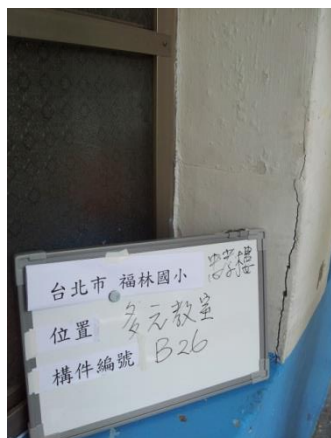 台北市 福林國小
位置 多元教室
構件編號 B26